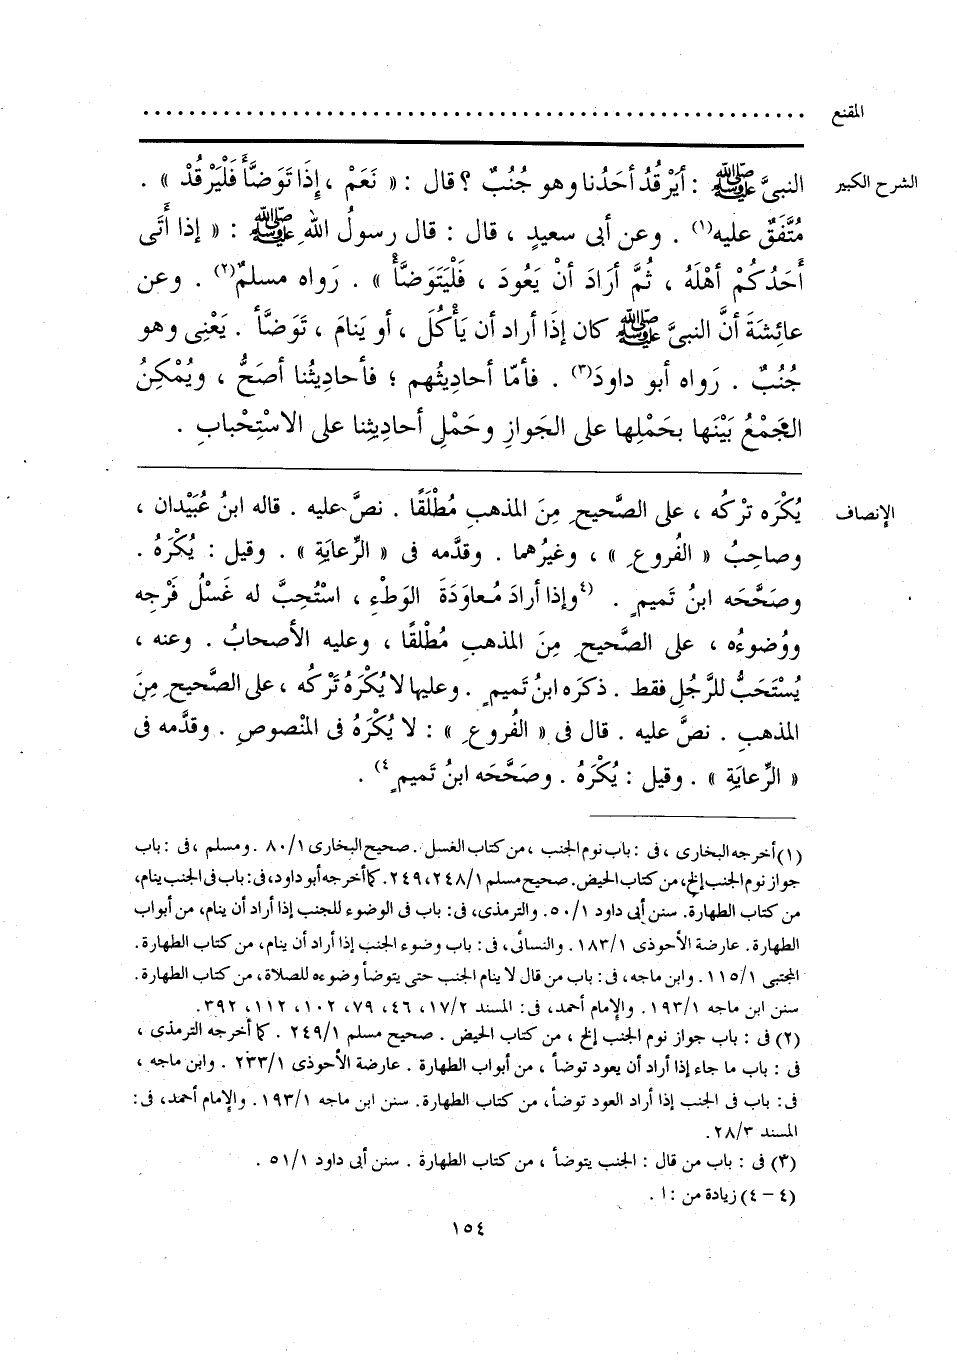 المقنع ............................................................
الشرح الكبير النبىَّ ﷺ : أيَرْقُدُ أحَدُنا وهو جُنُبٌ ؟ قال : « نَعَمْ ، إِذَا تَوَضَّأَ فَلْيَرْقُدْ » .
مُتَّفَقٌ عليه(١) . وعن أبى سعيدٍ ، قال : قال رسولُ اللهِ ﷺ : « إذا أَتَى
أَحَدُكُمْ أهْلَهُ ، ثُمَّ أرَادَ أنْ يَعُودَ ، فَلْيَتَوَضَّأْ » . رَواه مسلمٌ(٢) . وعن
عائِشَةَ أنَّ النبىَّ ﷺ كان إذَا أراد أن يَأْكُلَ ، أو يَنامَ ، تَوَضَّأ . يَعْنِى وهو
جُنُبٌ . رَواه أبو داودَ(٣) . فأمّا أحادِيثُهم ؛ فأحادِيثُنا أصَحُّ ، ويُمْكِنُ
الجَمْعُ بَيْنَها بحَمْلِها على الجَوازِ وحَمْلِ أحادِيثِنا على الاسْتِحْبابِ .
الإنصاف يُكْرَه تَرْكُه ، على الصَّحيحِ مِنَ المذهبِ مُطْلَقًا . نصَّ عليه . قاله ابنُ عُبَيْدان ،
وصاحِبُ « الفُروعِ » ، وغيرُهما . وقدَّمه فى « الرِّعايَةِ » . وقيل : يُكْرَهُ .
وصَحَّحَه ابنُ تَميمٍ . (٤وإذا أرادَ مُعاوَدَةَ الوَطْءِ ، اسْتُحِبَّ له غَسْلُ فَرْجِه
ووُضوءُه ، على الصَّحيحِ مِنَ المذهبِ مُطْلَقًا ، وعليه الأصحابُ . وعنه ،
يُسْتَحَبُّ للرَّجُلِ فقط . ذكَره ابنُ تَميمٍ . وعليها لا يُكْرَهُ تَرْكُه ، على الصَّحيحِ مِنَ
المذهبِ . نصَّ عليه . قال فى « الفُروعِ » : لا يُكْرَهُ فى المنْصوصِ . وقدَّمه فى
« الرِّعايَةِ » . وقيل : يُكْرَهُ . وصَحَّحَه ابنُ تَميمٍ ٤) .
(١) أخرجه البخارى ، فى : باب نوم الجنب ، من كتاب الغسل . صحيح البخارى ٨٠/١ . ومسلم ، فى : باب
جواز نوم الجنب إلخ، من كتاب الحيض. صحيح مسلم ٢٤٨/١، ٢٤٩. كما أخرجه أبو داود، فى: باب فى الجنب ينام،
من كتاب الطهارة. سنن أبى داود ٥٠/١. والترمذى، فى: باب فى الوضوء للجنب إذا أراد أن ينام، من أبواب
الطهارة. عارضة الأحوذى ١٨٣/١. والنسائى، فى: باب وضوء الجنب إذا أراد أن ينام، من كتاب الطهارة.
المجتبى ١١٥/١. وابن ماجه، فى: باب من قال لا ينام الجنب حتى يتوضأ وضوءه للصلاة، من كتاب الطهارة.
سنن ابن ماجه ١٩٣/١. والإمام أحمد، فى: المسند ١٧/٢، ٤٦، ٧٩، ١٠٢، ١١٢، ٣٩٢.
(٢) فى : باب جواز نوم الجنب إلخ ، من كتاب الحيض . صحيح مسلم ٢٤٩/١ . كما أخرجه الترمذى ،
فى : باب ما جاء إذا أراد أن يعود توضأ ، من أبواب الطهارة . عارضة الأحوذى ٢٣٣/١ . وابن ماجه ،
فى: باب فى الجنب إذا أراد العود توضأ، من كتاب الطهارة. سنن ابن ماجه ١٩٣/١. والإمام أحمد، فى:
المسند ٢٨/٣.
(٣) فى : باب من قال : الجنب يتوضأ ، من كتاب الطهارة . سنن أبى داود ٥١/١ .
(٤ – ٤) زيادة من : ا .
١٥٤